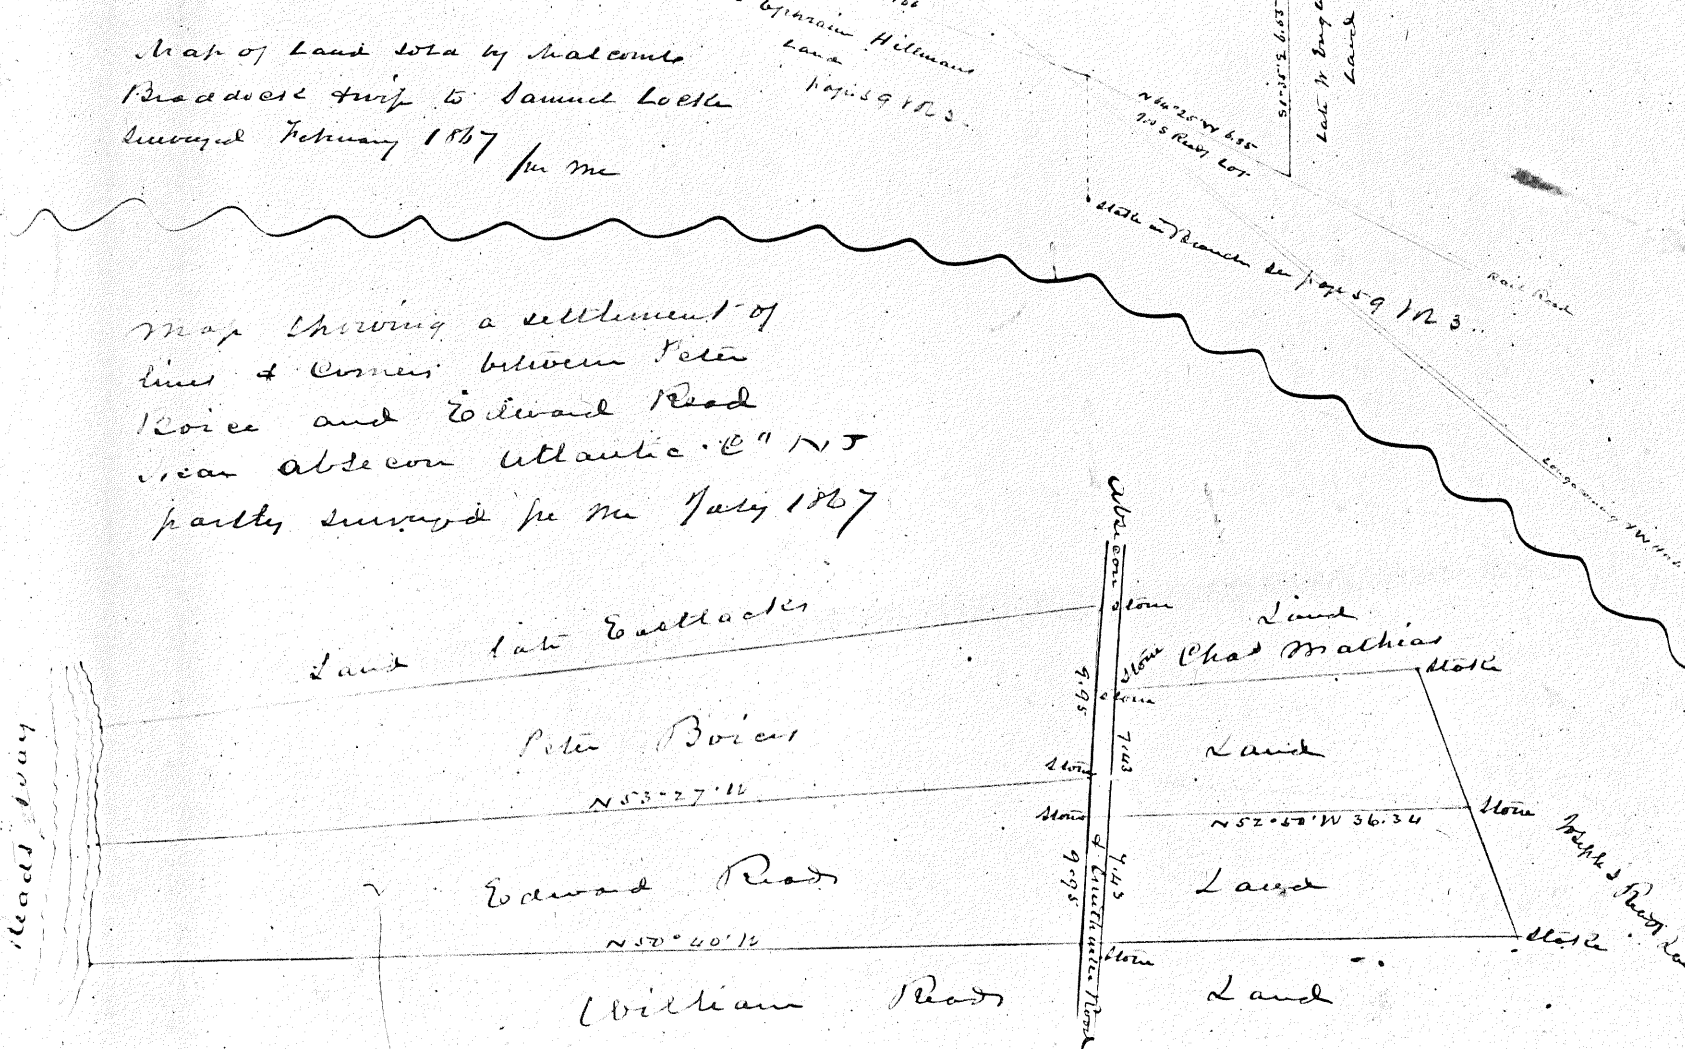 Map of Land sold by Malcomb
Braddock & wife to Samuel Locke
surveyed February 1867
per me
Ephraim Hillmans
Land
page 59 VR 3
N64°25'W 6.85
Late W
Land
Stake in Branch see page 59 VR 3
Rail Road
Map showing a settlement of
lines & corners between Peter
Boice and Edward Read
near absecon Atlantic "C" NJ
partly surveyed per me July 1867
Absecon
Land late Eastlacks
Stone
Land
Chas Mathias
Stone
Stake
Stone
9.95
7.43
Peter Boices
Land
Stone
N53°27'W
Stone
N52°50'W 36.34
Stone
Reads Bay
Edward Reads
Land
9.95
7.43
Joseph S Reads
N50°40'W
Stone
Stake
& Smithville Road
William Reads
Land